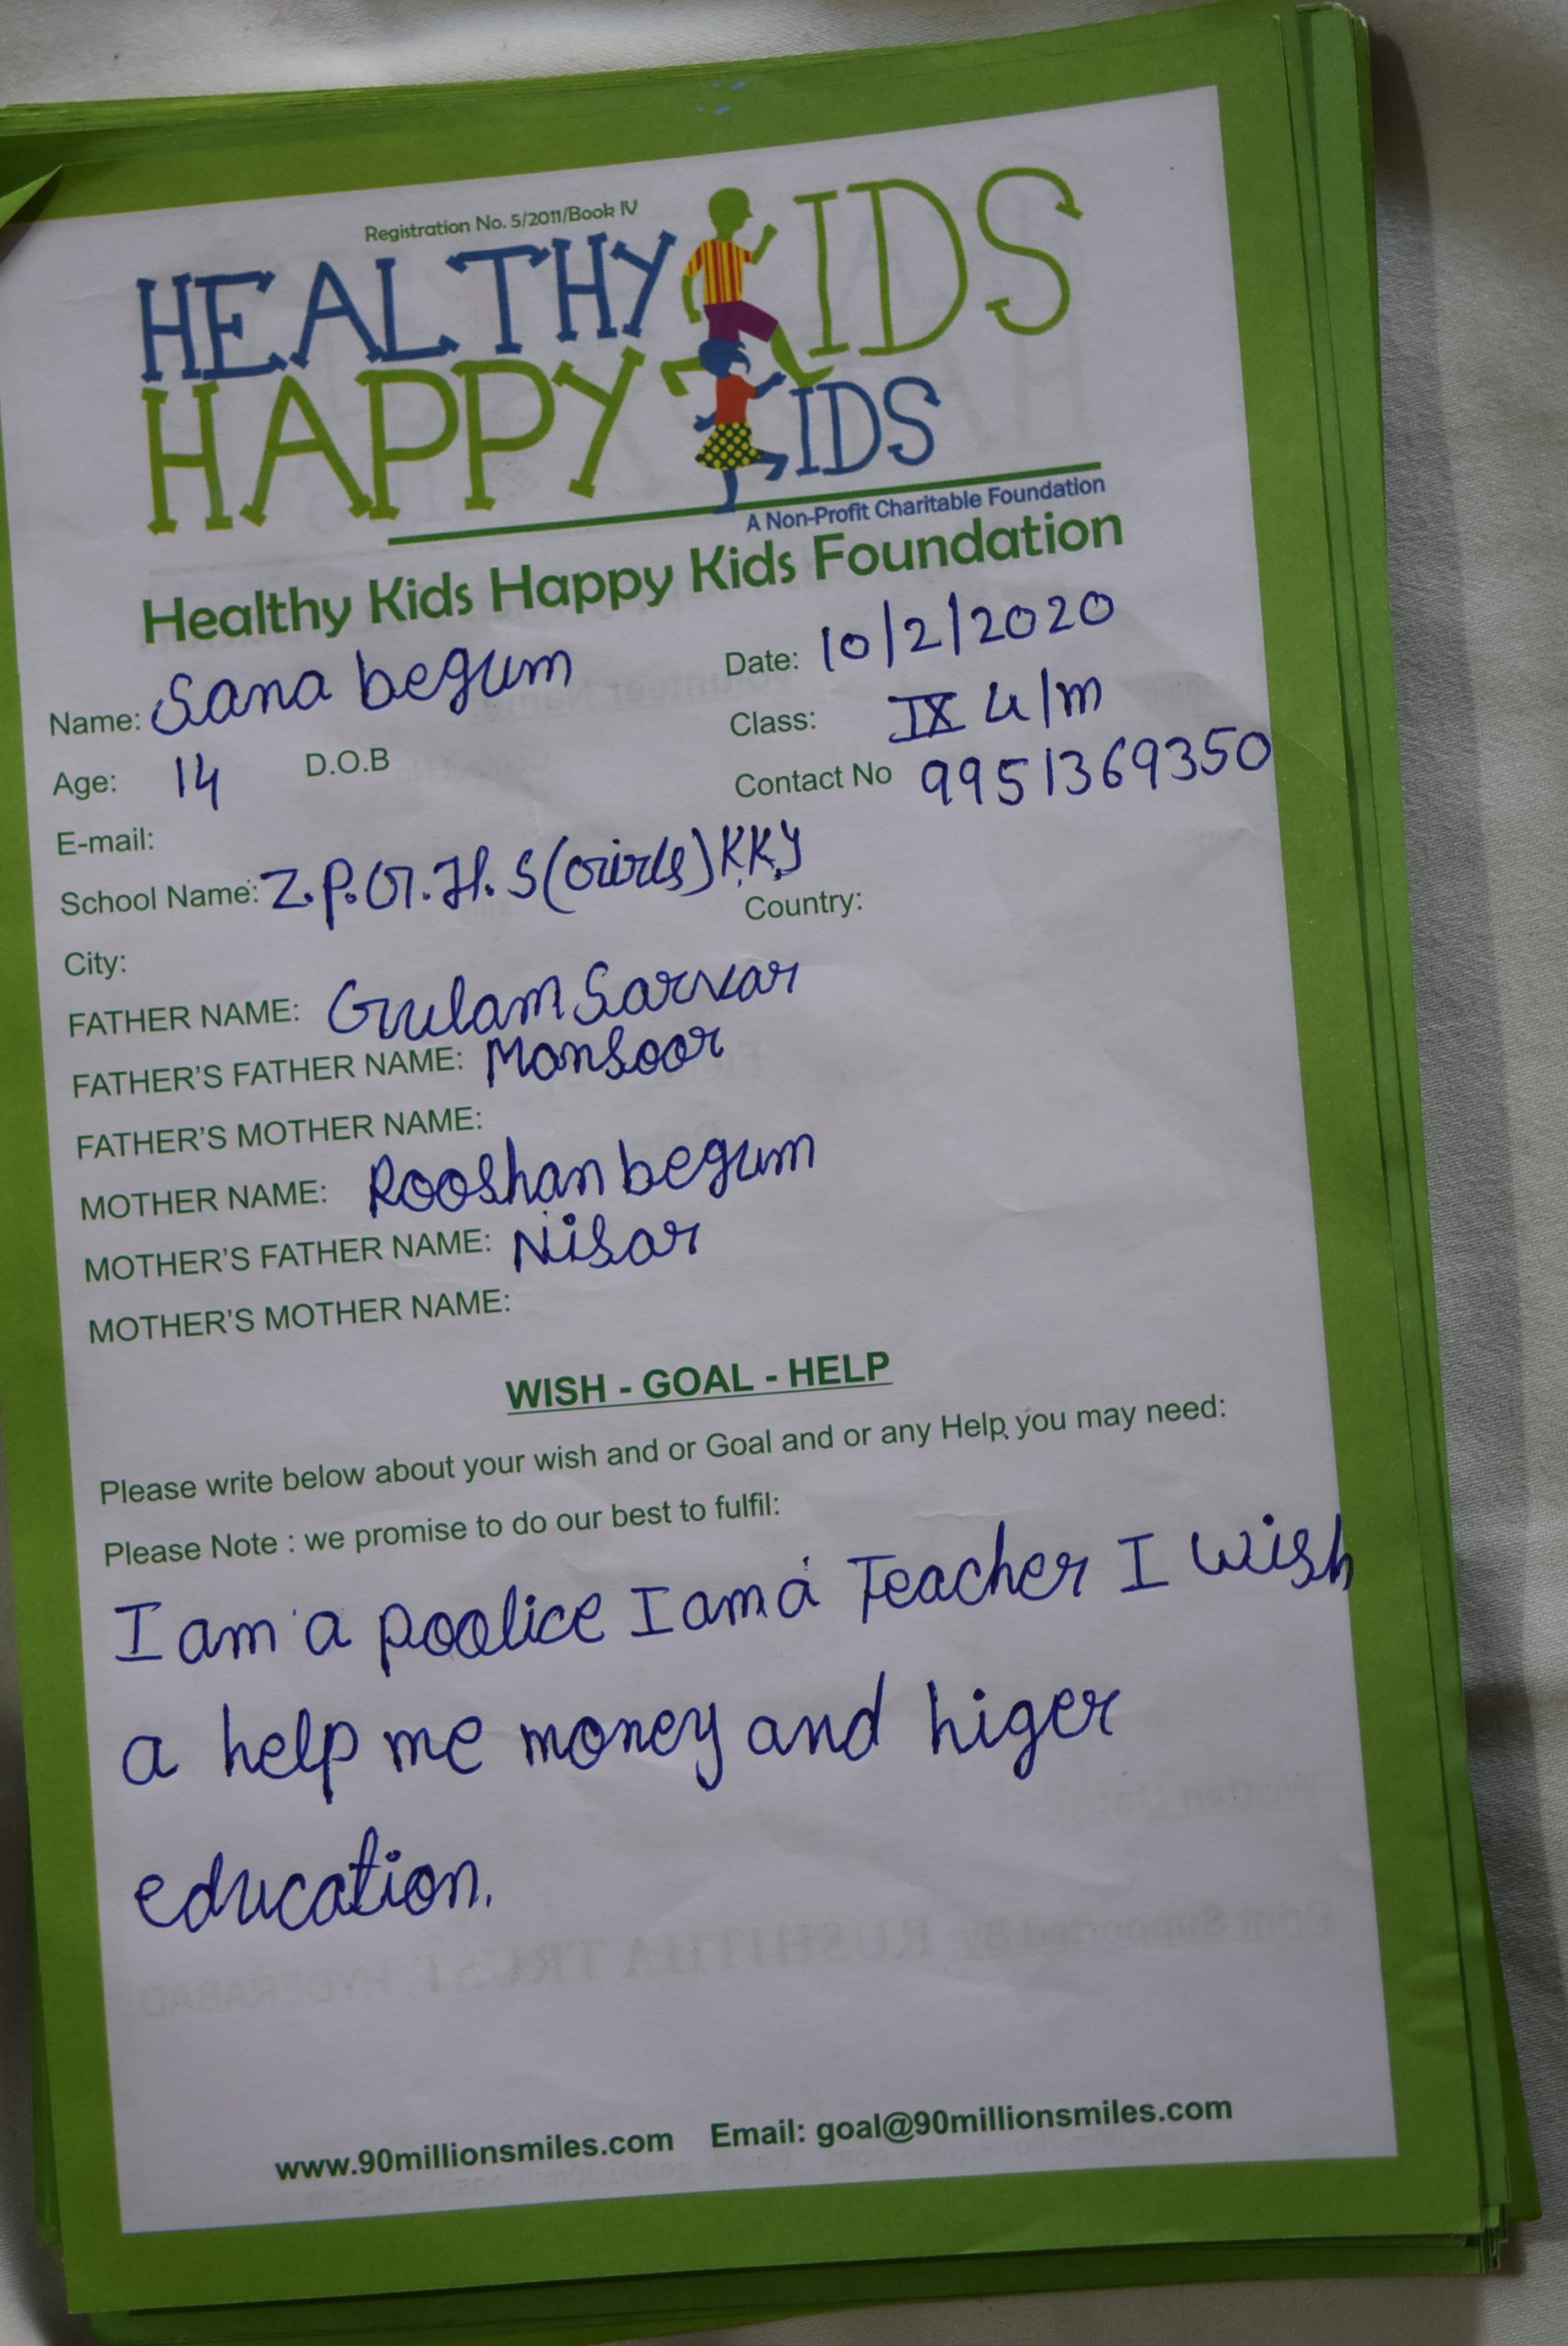 Registration No. 5/2011/Book IV
HEALTHY KIDS
HAPPY KIDS
A Non-Profit Charitable Foundation
Healthy Kids Happy Kids Foundation
Name: Sana begum Date: 10/2/2020
Class: IX u/m
Age: 14 D.O.B Contact No 9951369350
E-mail:
School Name: Z.P.G.H.S (Girls) KKY
City: Country:
FATHER NAME: Gulam Sarvar
FATHER'S FATHER NAME: Mansoor
FATHER'S MOTHER NAME:
MOTHER NAME: Rooshan begum
MOTHER'S FATHER NAME: Nisar
MOTHER'S MOTHER NAME:
WISH - GOAL - HELP
Please write below about your wish and or Goal and or any Help you may need:
Please Note : we promise to do our best to fulfil:
I am a poolice I am a Teacher I wish
a help me money and higer
education.
www.90millionsmiles.com Email: goal@90millionsmiles.com